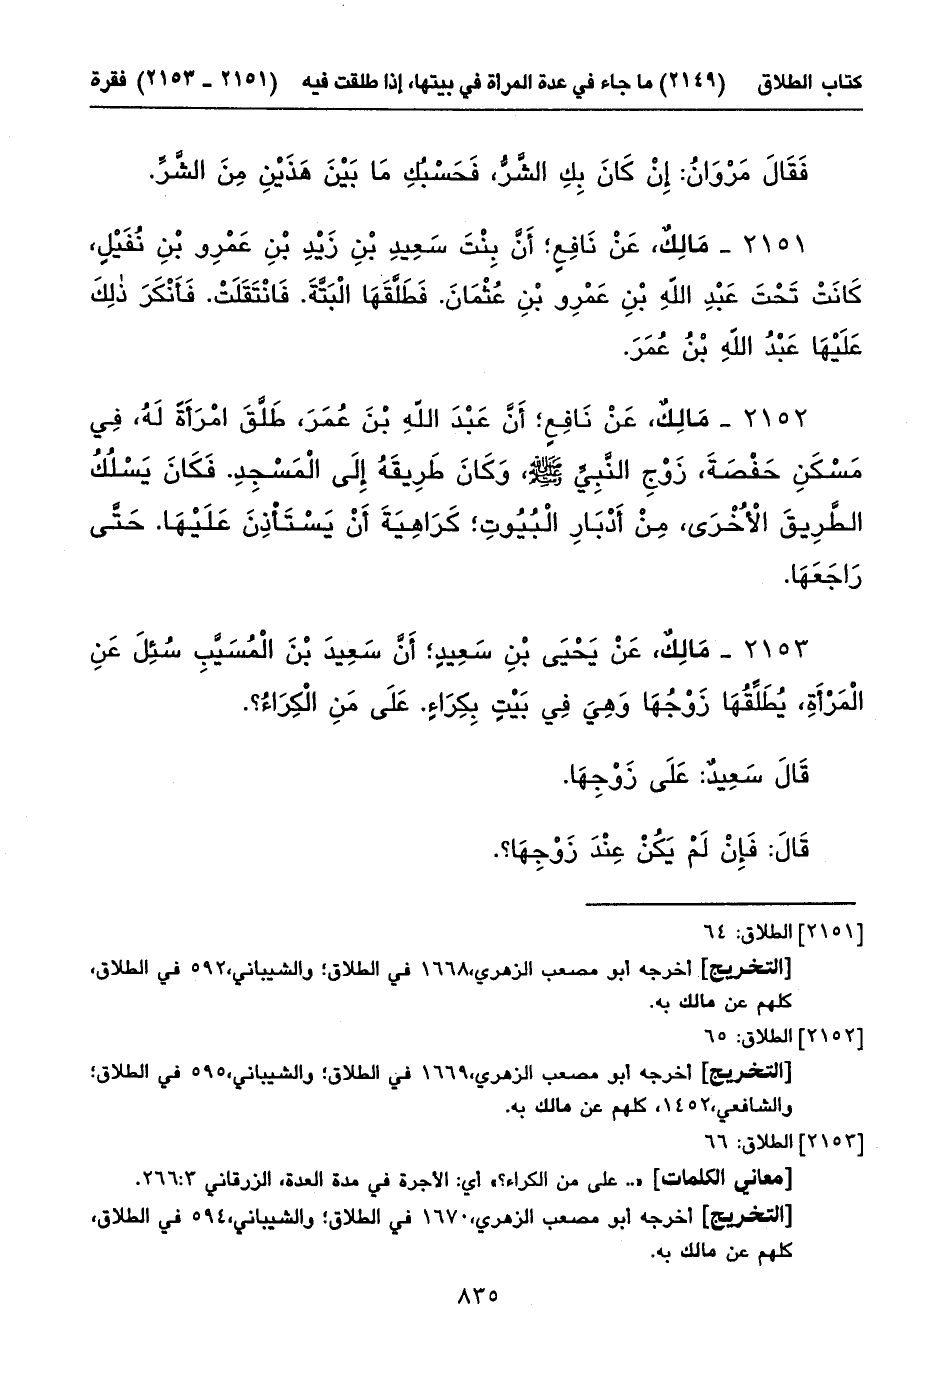 كتاب الطلاق (٢١٤٩) ما جاء في عدة المرأة في بيتها، إذا طلقت فيه (٢١٥١ ـ ٢١٥٣) فقرة
فَقَالَ مَرْوَانُ: إِنْ كَانَ بِكِ الشَّرُّ، فَحَسْبُكِ مَا بَيْنَ هَذَيْنِ مِنَ الشَّرِّ.
٢١٥١ ـ مَالِكٌ، عَنْ نَافِعٍ؛ أَنَّ بِنْتَ سَعِيدِ بْنِ زَيْدِ بْنِ عَمْرِو بْنِ نُفَيْلٍ،
كَانَتْ تَحْتَ عَبْدِ اللّهِ بْنِ عَمْرِو بْنِ عُثْمَانَ. فَطَلَّقَهَا الْبَتَّةَ. فَانْتَقَلَتْ. فَأَنْكَرَ ذٰلِكَ
عَلَيْهَا عَبْدُ اللّهِ بْنُ عُمَرَ.
٢١٥٢ ـ مَالِكٌ، عَنْ نَافِعٍ؛ أَنَّ عَبْدَ اللّهِ بْنَ عُمَرَ، طَلَّقَ امْرَأَةً لَهُ، فِي
مَسْكَنِ حَفْصَةَ، زَوْجِ النَّبِيِّ ﷺ، وَكَانَ طَرِيقَهُ إِلَى الْمَسْجِدِ. فَكَانَ يَسْلُكُ
الطَّرِيقَ الْأُخْرَى، مِنْ أَدْبَارِ الْبُيُوتِ؛ كَرَاهِيَةَ أَنْ يَسْتَأْذِنَ عَلَيْهَا. حَتَّى
رَاجَعَهَا.
٢١٥٣ ـ مَالِكٌ، عَنْ يَحْيَى بْنِ سَعِيدٍ؛ أَنَّ سَعِيدَ بْنَ الْمُسَيَّبِ سُئِلَ عَنِ
الْمَرْأَةِ، يُطَلِّقُهَا زَوْجُهَا وَهِيَ فِي بَيْتٍ بِكِرَاءٍ. عَلَى مَنِ الْكِرَاءُ؟.
قَالَ سَعِيدٌ: عَلَى زَوْجِهَا.
قَالَ: فَإِنْ لَمْ يَكُنْ عِنْدَ زَوْجِهَا؟.
[٢١٥١] الطلاق: ٦٤
[التخريج] أخرجه أبو مصعب الزهري،١٦٦٨ في الطلاق؛ والشيباني،٥٩٢ في الطلاق،
كلهم عن مالك به.
[٢١٥٢] الطلاق: ٦٥
[التخريج] أخرجه أبو مصعب الزهري،١٦٦٩ في الطلاق؛ والشيباني،٥٩٥ في الطلاق؛
والشافعي،١٤٥٢، كلهم عن مالك به.
[٢١٥٣] الطلاق: ٦٦
[معاني الكلمات] «.. على من الكراء؟» أي: الأجرة في مدة العدة، الزرقاني ٢٦٦:٣.
[التخريج] أخرجه أبو مصعب الزهري،١٦٧٠ في الطلاق؛ والشيباني،٥٩٤ في الطلاق،
كلهم عن مالك به.
٨٣٥